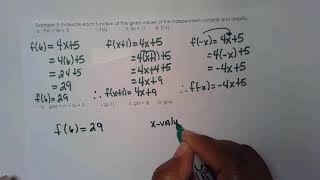 Example 3: Evaluate each function at the given values of the independent variable and simplify.
f(6) = 4x+5
= 4(6)+5
= 24+5
= 29
f(x+1) = 4x+5
= 4(x+1)+5
= 4x+4+5
= 4x+9
∴ f(x+1) = 4x+9
f(-x) = 4x+5
= 4(-x)+5
= -4x+5
∴ f(-x) = -4x+5
f(6) = 29
x-valu